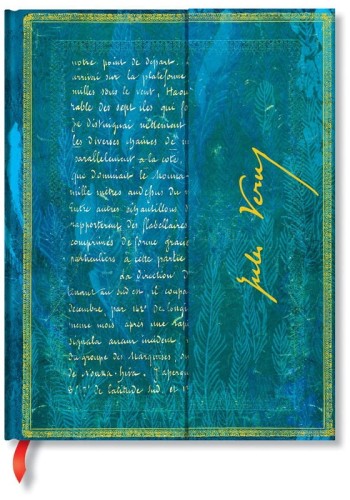 notre point de départ.
arrivai sur la plateforme
milles sous le vent, Haou
rable des sept iles qui fo
Je distinguai nettement
les diverses chaînes de m
parallèlement à la côte,
que dominait le
mille mètres audessus du
Entre autres échantillons
rapportèrent des flabellaires
comprimés de forme graci
particuliers à cette partie
La direction
lançant au sud est, il coupa
décembre, par 142° de longi
meme mois après une rapi
signala aucun incident,
du groupe des Marquises,
de Nouka-hiva. J'aperçu
8°57' de latitude sud, et 13
Jules Verne